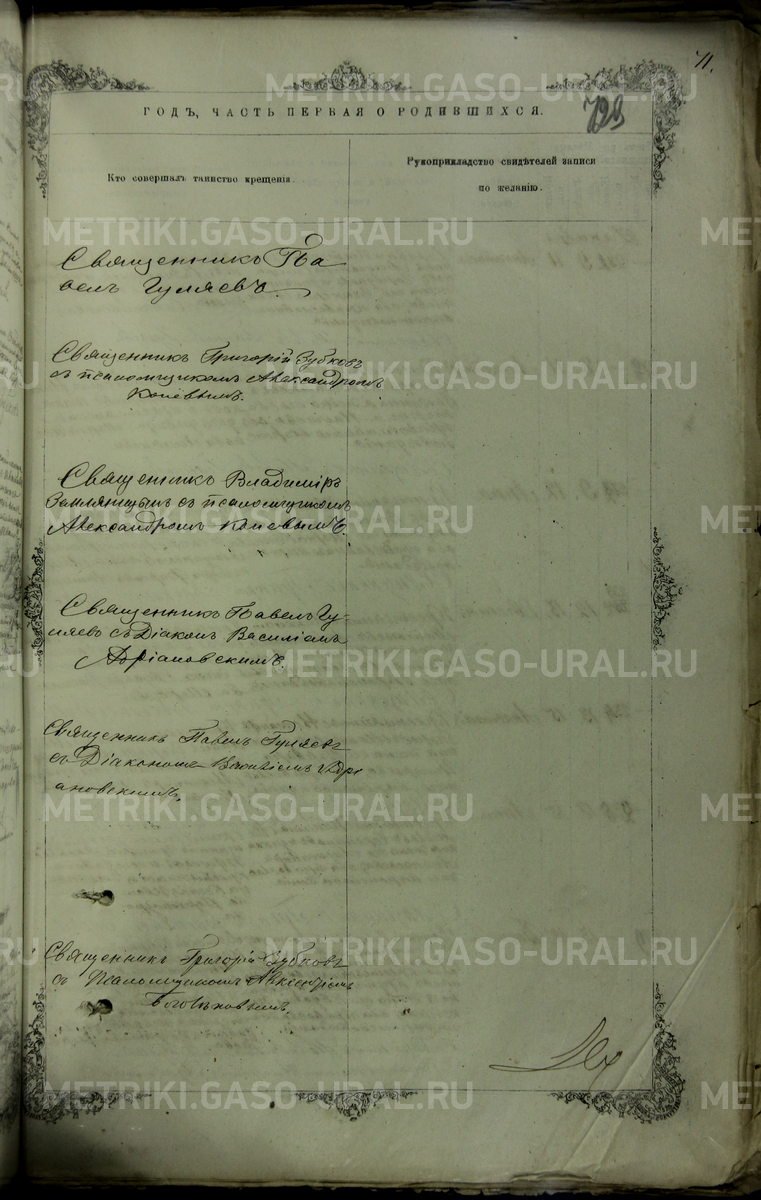 71.
ГОДЪ, ЧАСТЬ ПЕРВАЯ О РОДИВШИХСЯ.
Кто совершалъ таинство крещенія.
Рукоприкладство свидѣтелей записи
по желанію.
Священникъ Па
велъ Гуляевъ.
Священникъ Григорій Зубковъ
съ псаломщикомъ Александромъ
Коневымъ.
Священникъ Владиміръ
съ псаломщикомъ
Александромъ Коневымъ.
Священникъ Павелъ Гу-
ляевъ съ Діакон Василіемъ
Адріановскимъ.
Священникъ Павелъ Гуляевъ
съ Діакономъ Василіемъ Адрі
ановскимъ.
Священникъ Григорій Зубковъ
съ Псаломщикомъ
METRIKI.GASO-URAL.RU